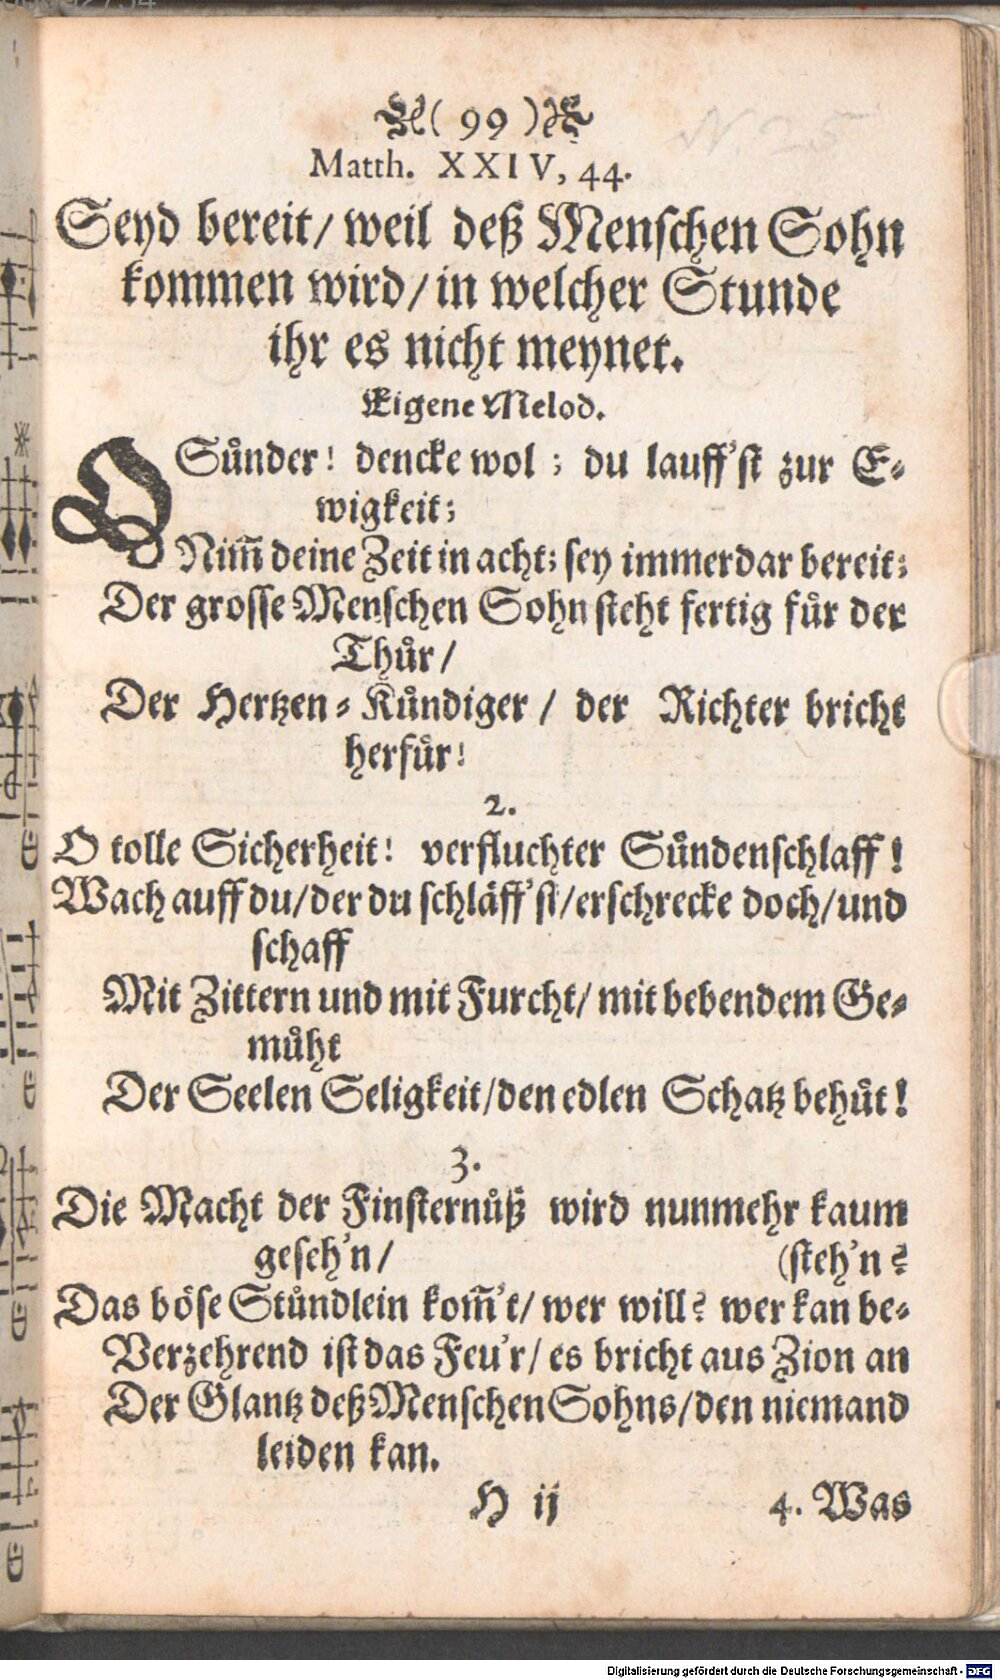 ( 99 )
Matth. XXIV, 44.
Seyd bereit/ weil deß Menschen Sohn
kommen wird/ in welcher Stunde
ihr es nicht meynet.
Eigene Melod.
O Sůnder! dencke wol; du lauff'st zur E-
wigkeit;
Nim̅ deine Zeit in acht; sey immerdar bereit;
Der grosse Menschen Sohn steht fertig fůr der
Thůr/
Der Hertzen-Kůndiger/ der Richter bricht
herfůr!
2.
O tolle Sicherheit! verfluchter Sůndenschlaff!
Wach auff du/ der du schläff'st/ erschrecke doch/ und
schaff
Mit Zittern und mit Furcht/ mit bebendem Ge-
můht
Der Seelen Seligkeit/ den edlen Schatz behůt!
3.
Die Macht der Finsternůß wird nunmehr kaum
geseh'n/ (steh'n?
Das böse Stůndlein kom̅'t/ wer will? wer kan be-
Verzehrend ist das Feu'r/ es bricht aus Zion an
Der Glantz deß Menschen Sohns/ den niemand
leiden kan.
H ij 4. Was
Digitalisierung gefördert durch die Deutsche Forschungsgemeinschaft - DFG